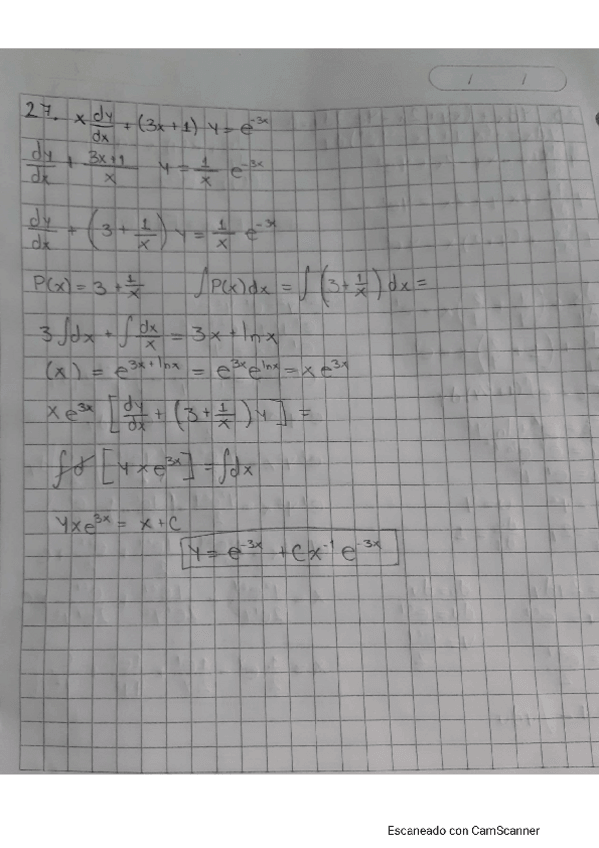 27. x dy/dx + (3x+1) y = e^-3x
dy/dx + 3x+1/x y = 1/x e^-3x
dy/dx + (3 + 1/x) y = 1/x e^-3x
P(x) = 3 + 1/x ∫P(x)dx = ∫(3 + 1/x) dx =
3∫dx + ∫dx/x = 3x + ln x
(x) = e^3x+lnx = e^3x e^lnx = x e^3x
x e^3x [dy/dx + (3 + 1/x) y] =
∫d [y x e^3x] = ∫dx
y x e^3x = x + c
y = e^-3x + c x^-1 e^-3x
Escaneado con CamScanner